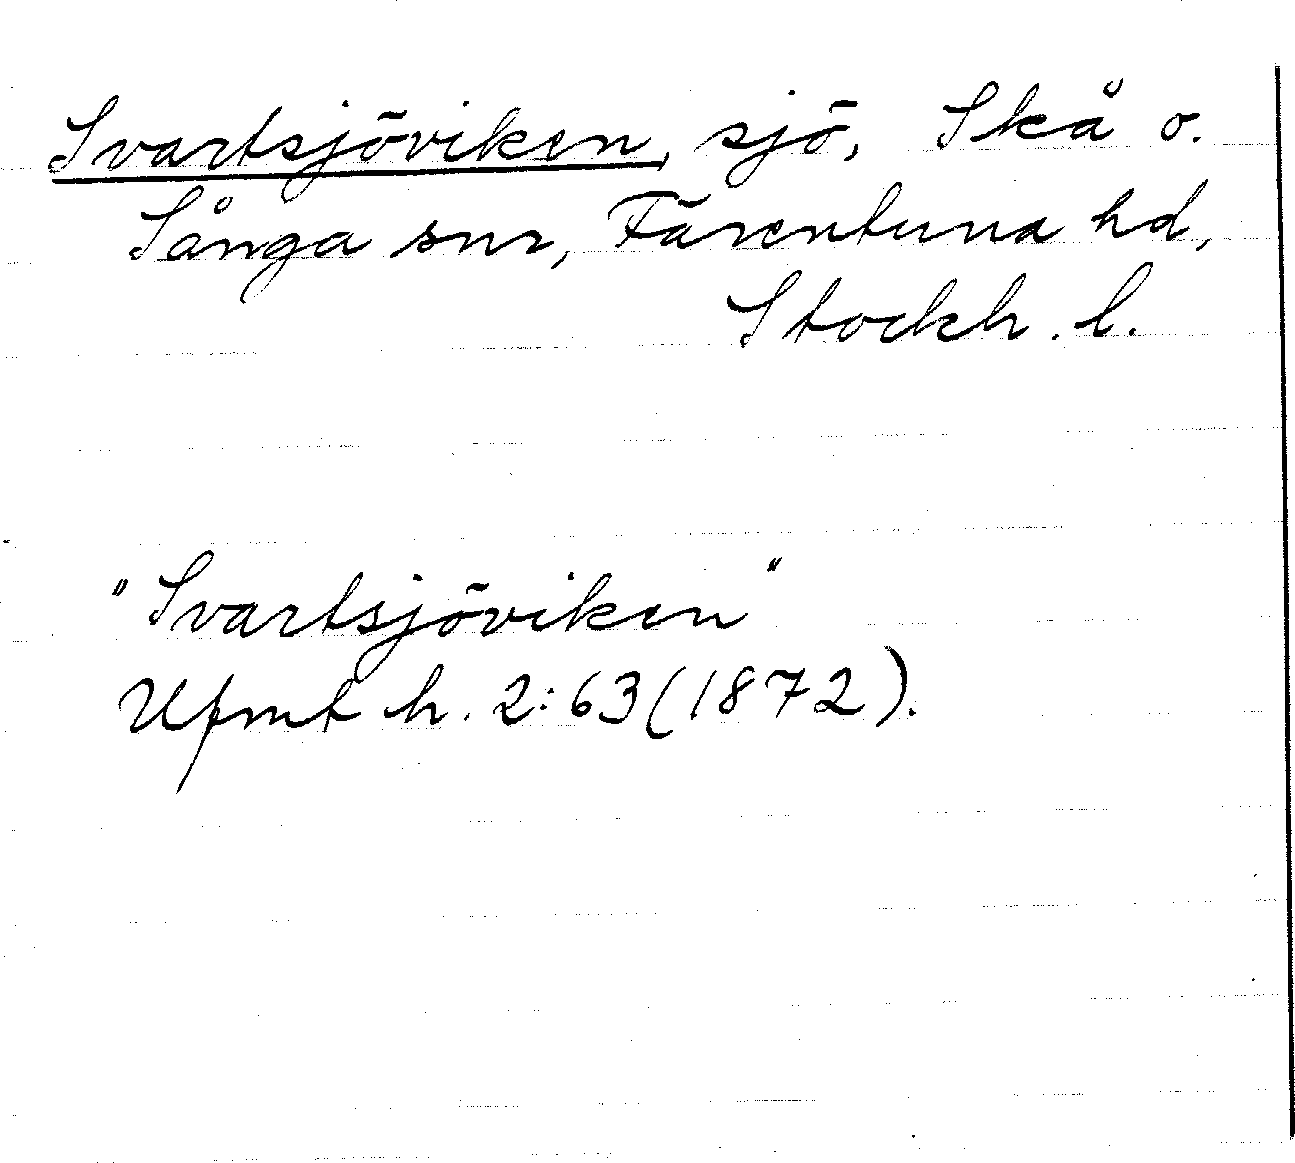 Svartsjöviken, sjö, Skå o.
Sånga snr, Färentuna hd,
Stockh. l.
"Svartsjöviken"
Upmt h. 2:63 (1872).